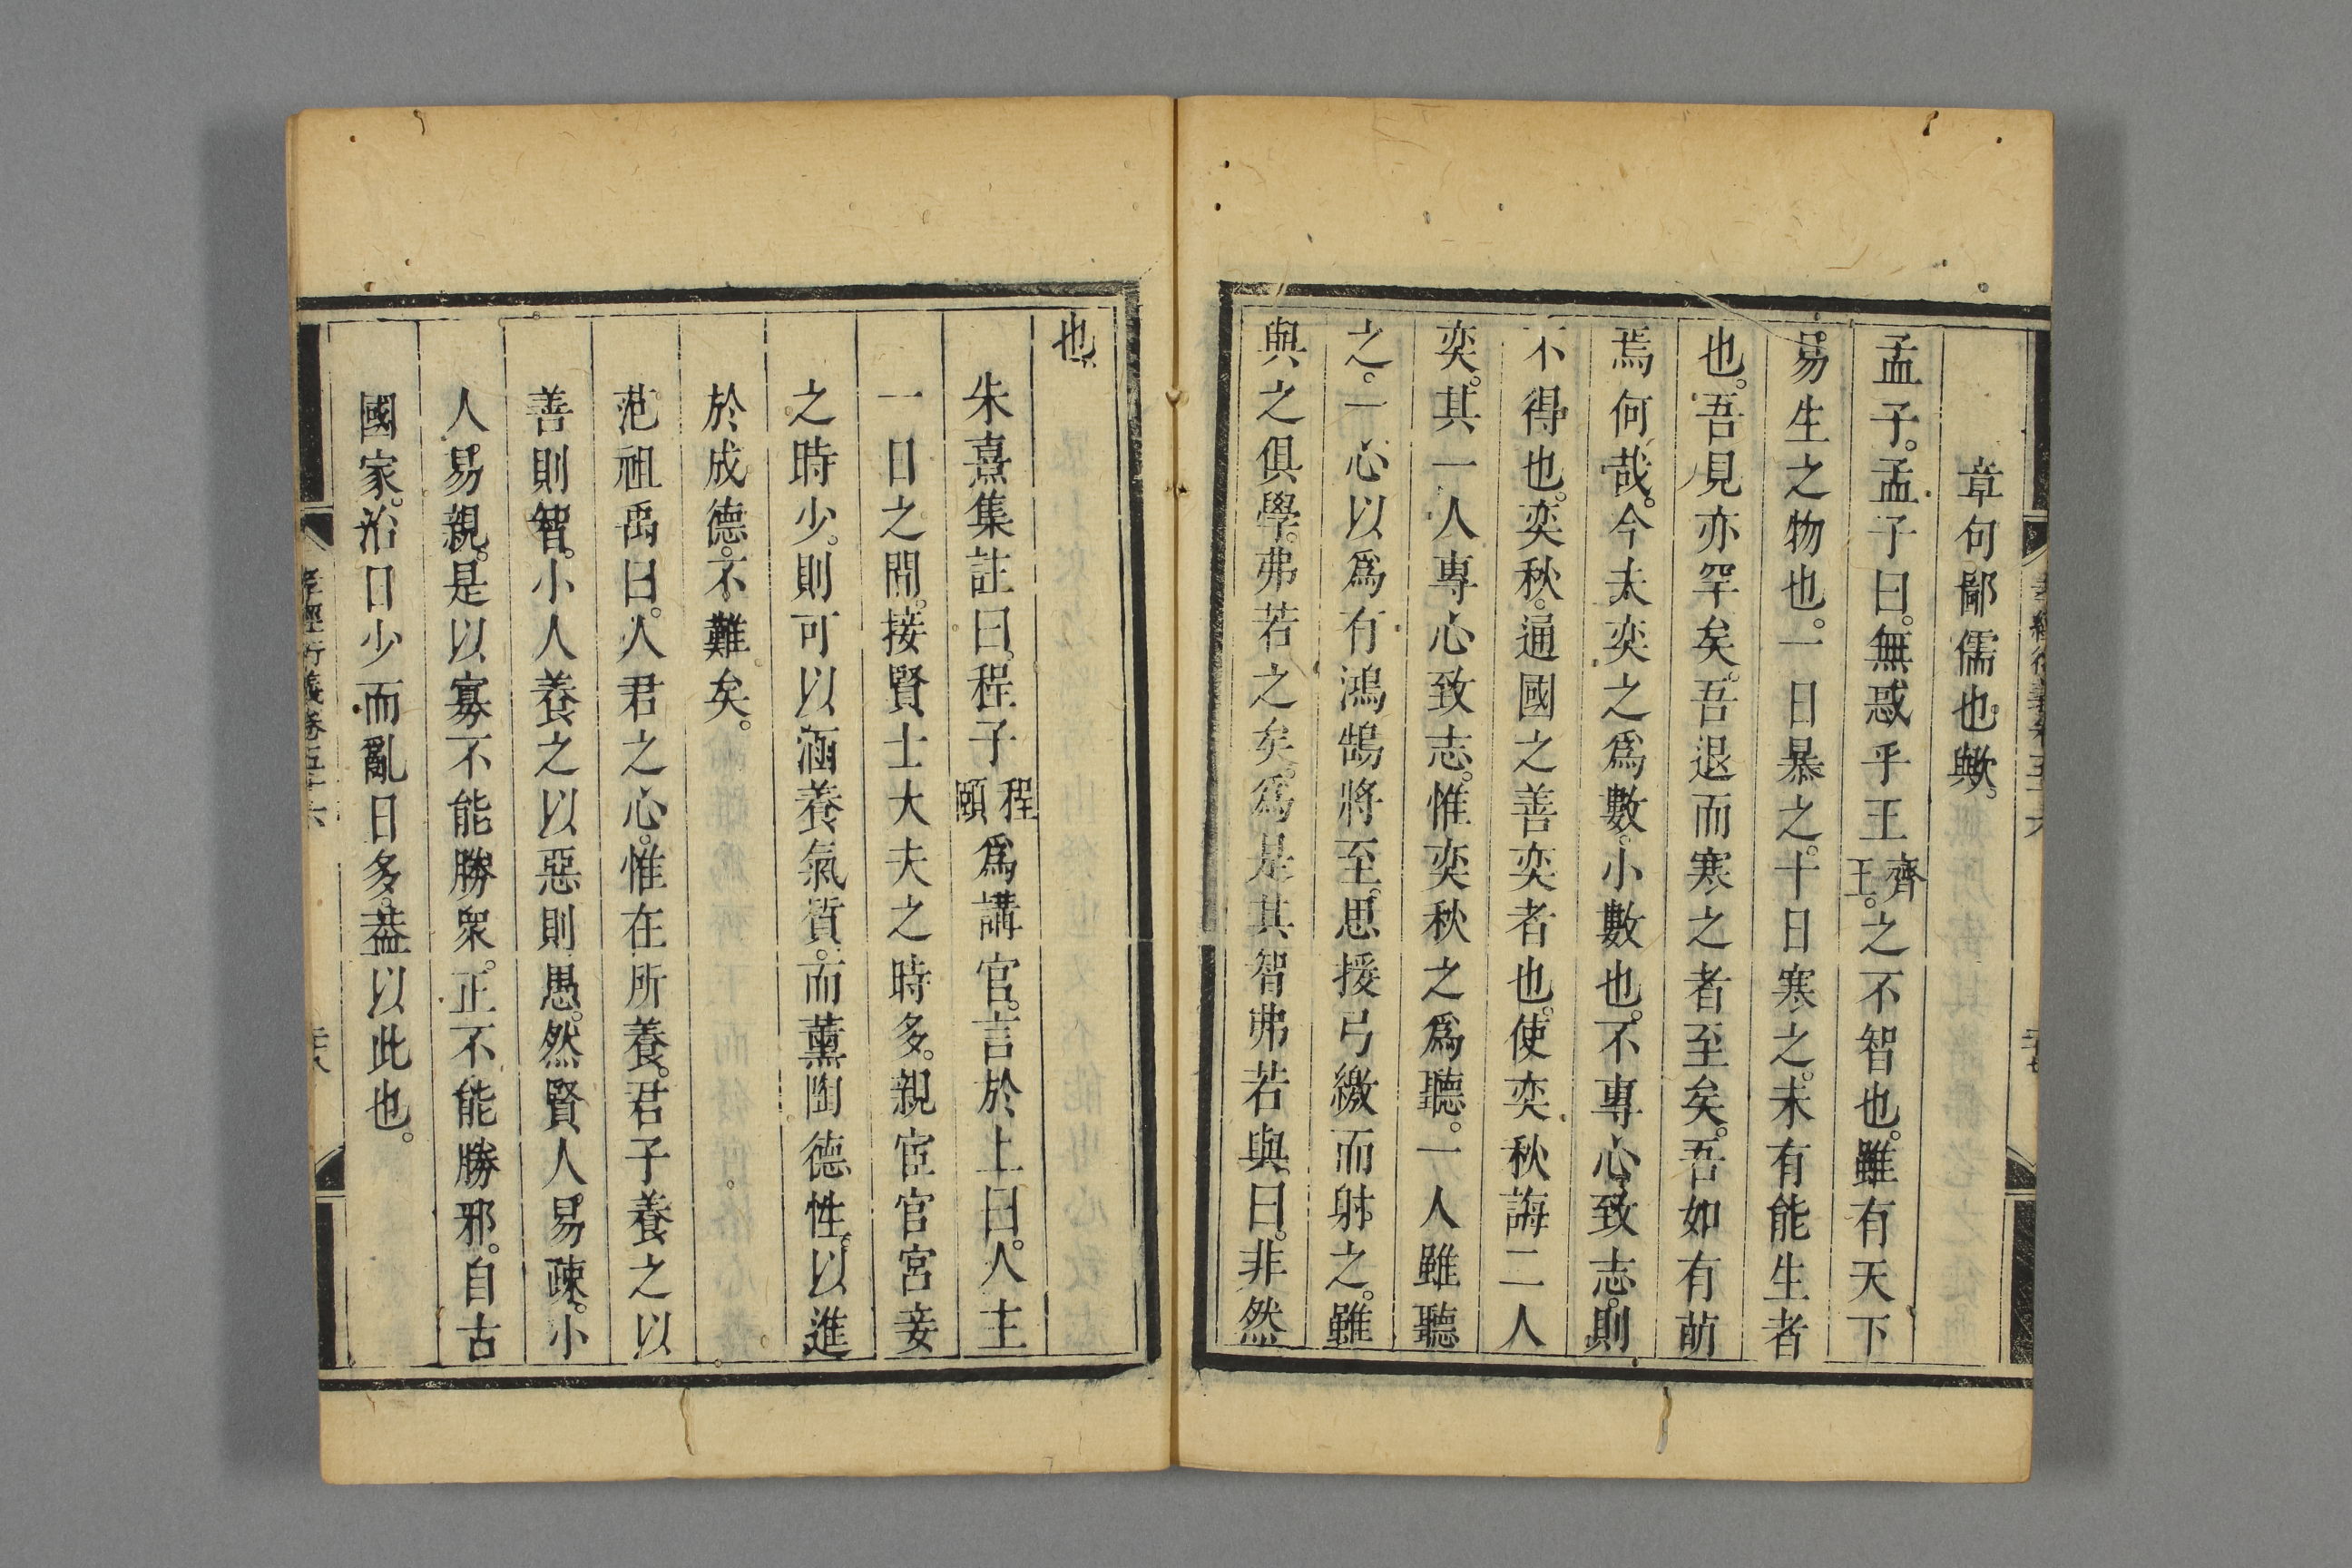 章句鄙儒也歟。
孟子。孟子曰。無惑乎王齊王。之不智也。雖有天下
易生之物也。一日暴之。十日寒之。未有能生者
也。吾見亦罕矣。吾退而寒之者至矣。吾如有萌
焉何哉。今夫奕之爲數。小數也。不專心致志。則
不得也。奕秋。通國之善奕者也。使奕秋誨二人
奕。其一人專心致志。惟奕秋之爲聽。一人雖聽
之。一心以爲有鴻鵠將至。思援弓繳而射之。雖
與之俱學。弗若之矣。爲是其智弗若與。曰。非然
也。
朱熹集註曰。程子程頤爲講官。言於上曰。人主
一日之間。接賢士大夫之時多。親宦官宮妾
之時少。則可以涵養氣質。而薰陶德性。以進
於成德。不難矣。
范祖禹曰。人君之心。惟在所養。君子養之以
善則智。小人養之以惡則愚。然賢人易疎。小
人易親。是以寡不能勝衆。正不能勝邪。自古
國家。治日少而亂日多。葢以此也。
孝經衍義卷五十六